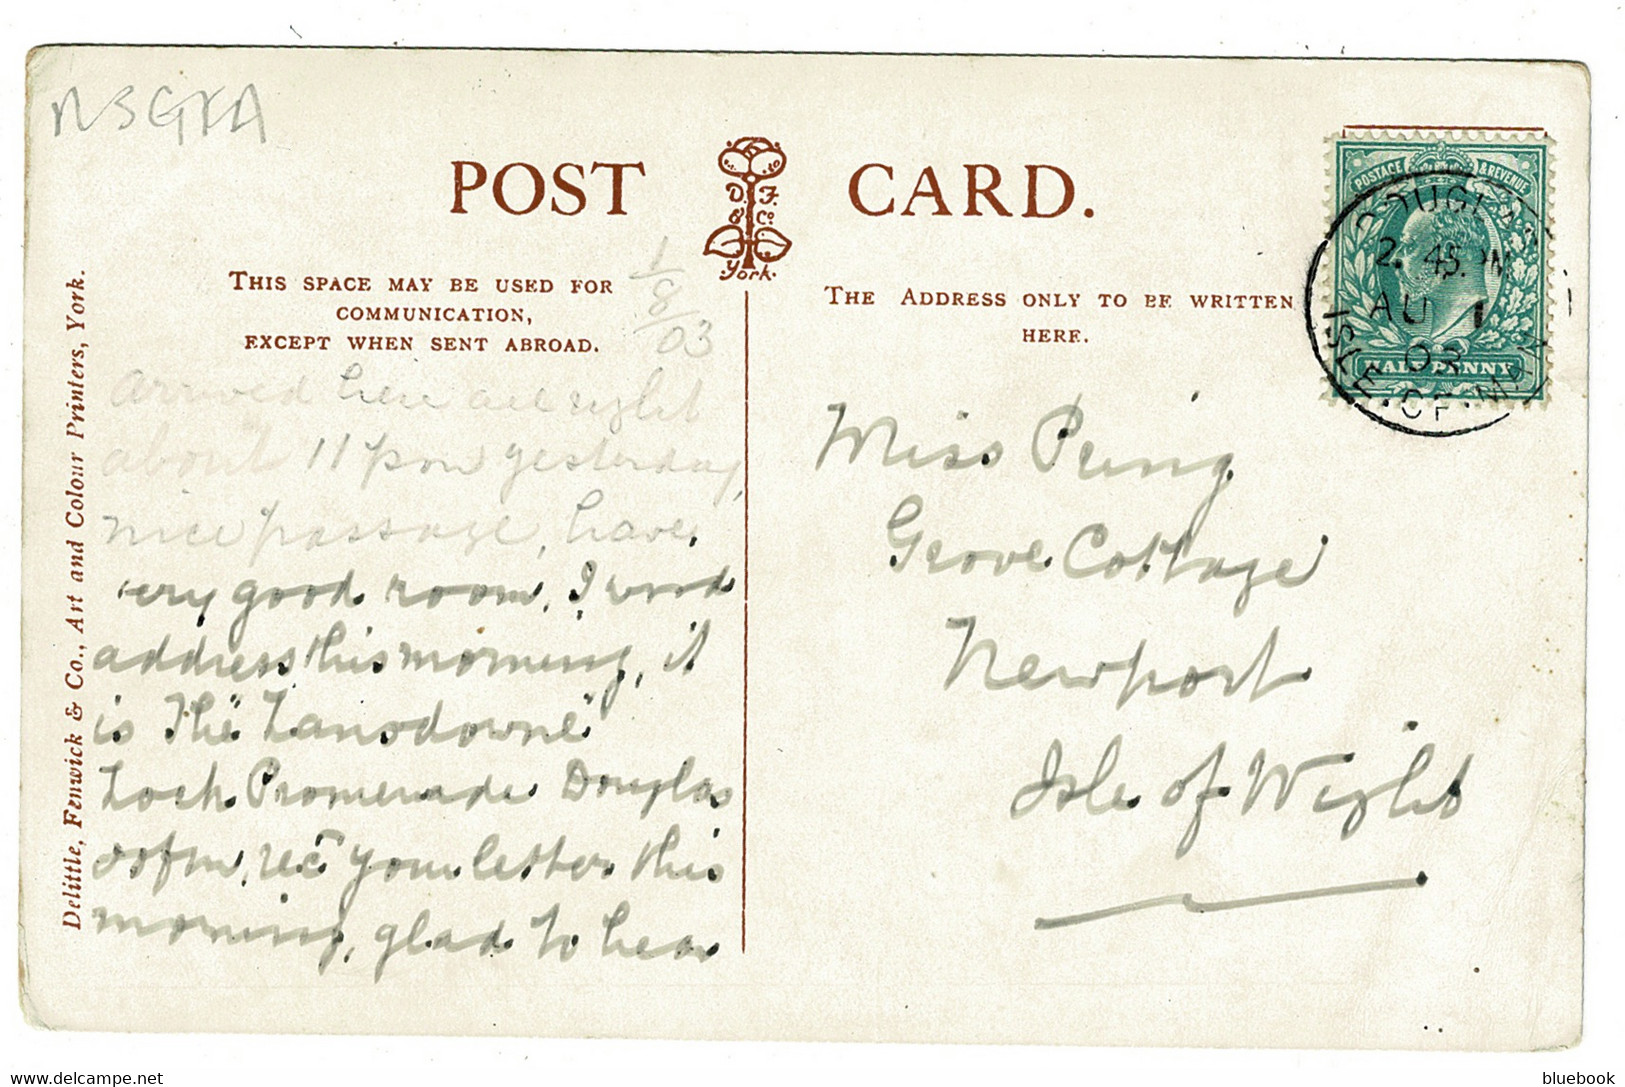 N3GKA
POST CARD.
D. F.
& Co
York.
THIS SPACE MAY BE USED FOR
COMMUNICATION,
EXCEPT WHEN SENT ABROAD.
1/8/03
THE ADDRESS ONLY TO BE WRITTEN
HERE.
POSTAGE & REVENUE
HALFPENNY
DOUGLAS
2. 45.
AU 1
03
ISLE OF MAN
Delittle, Fenwick & Co., Art and Colour Printers, York.
arrived here all right
about 11 pm yesterday,
nice passage, have
very good room, I
address this morning, it
is "The Lansdowne"
Loch Promenade Douglas
I of m, rec^d your letter this
morning, glad to hear
Miss Pring
Grove Cottage
Newport
Isle of Wight
bluebook